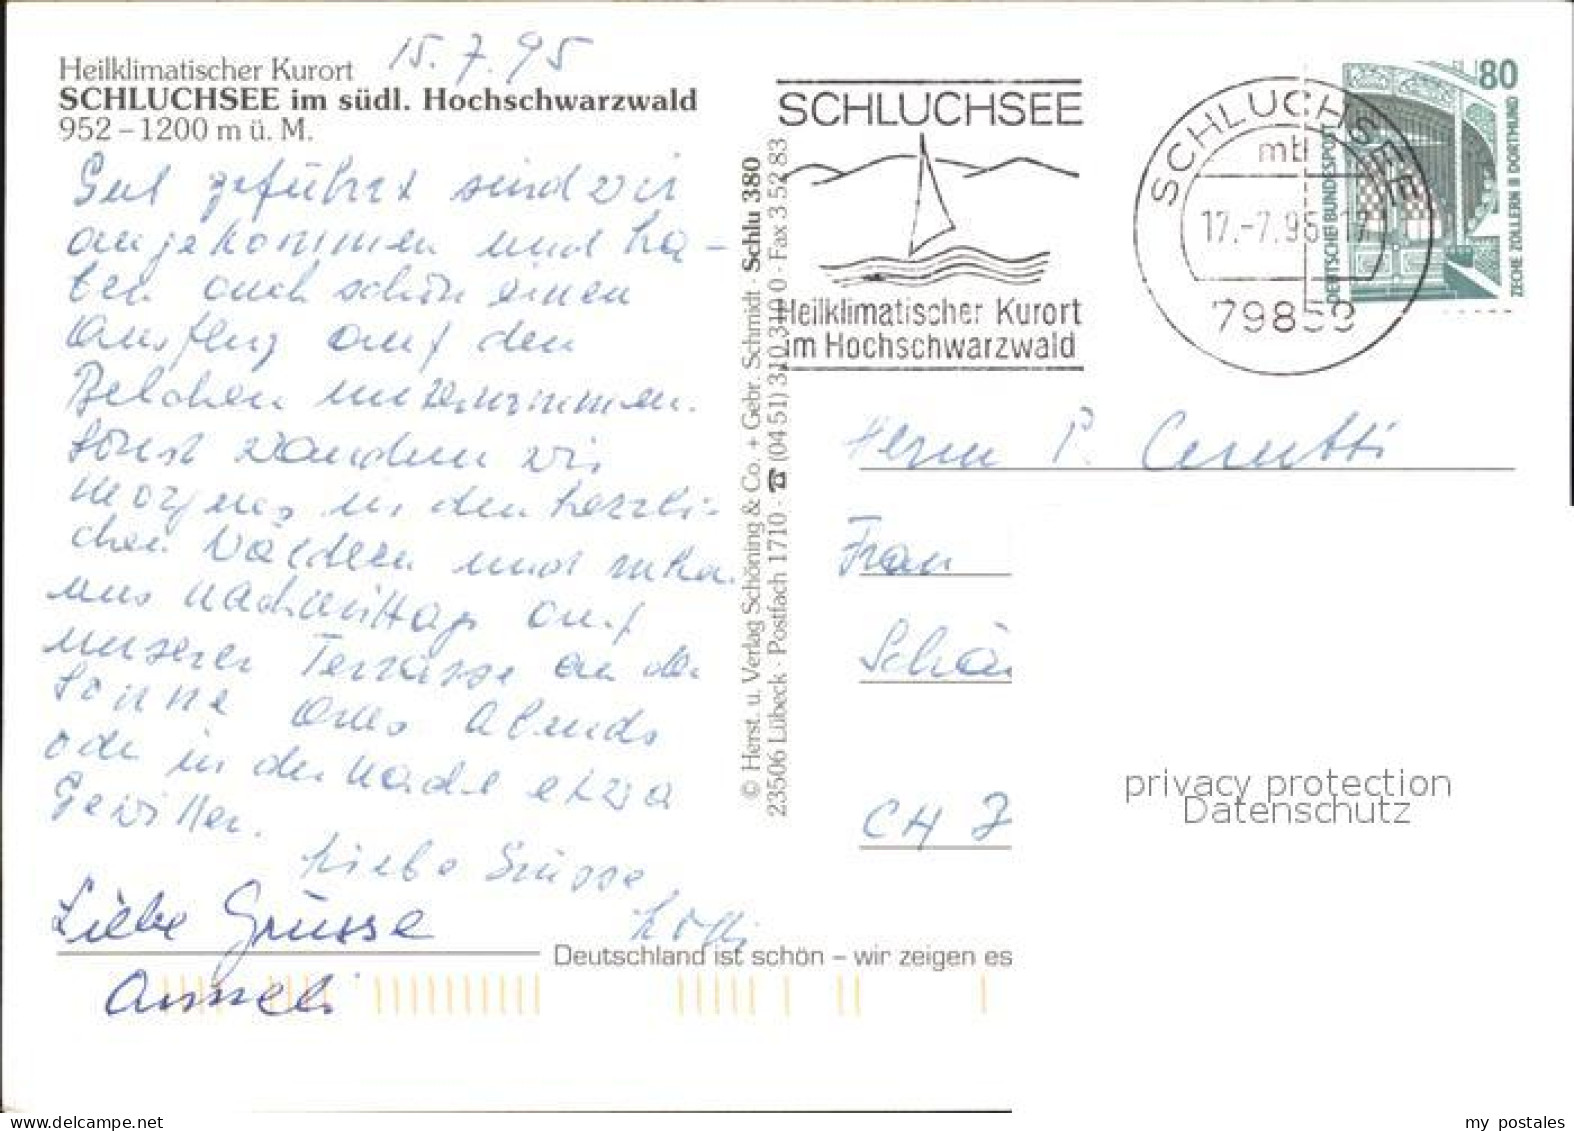 15.7.95
Heilklimatischer Kurort
SCHLUCHSEE im südl. Hochschwarzwald
952 – 1200 m ü. M.
Gut geführt sind wir
angekommen und ha-
ben auch schön einen
Ausflug auf den
Belchen unternommen.
Sonst wandern wir
morgens in den herrli-
chen Wäldern und ruhen
uns nachmittags auf
unserer Terrasse an der
Sonne aus. Abends
oder in der Nacht etwa
Gewitter.
Liebe Grüsse
Lotti
Liebe Grüsse
Anneli
© Herst. u. Verlag Schöning & Co. + Gebr. Schmidt · Schlu 380
23506 Lübeck · Postfach 1710 · ☎ (04 51) 310 310 · Fax 3 52 83
SCHLUCHSEE
Heilklimatischer Kurort
im Hochschwarzwald
SCHLUCHSEE
mb
17.-7.95-17
79859
80
DEUTSCHE BUNDESPOST
ZECHE ZOLLERN II DORTMUND
Herrn P. Cerutti
Frau
CH
privacy protection
Datenschutz
Deutschland ist schön – wir zeigen es
delcampe.net
my postales